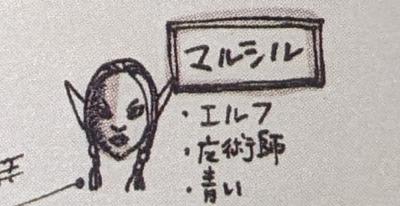 マルシル
・エルフ
・广術師
・青い